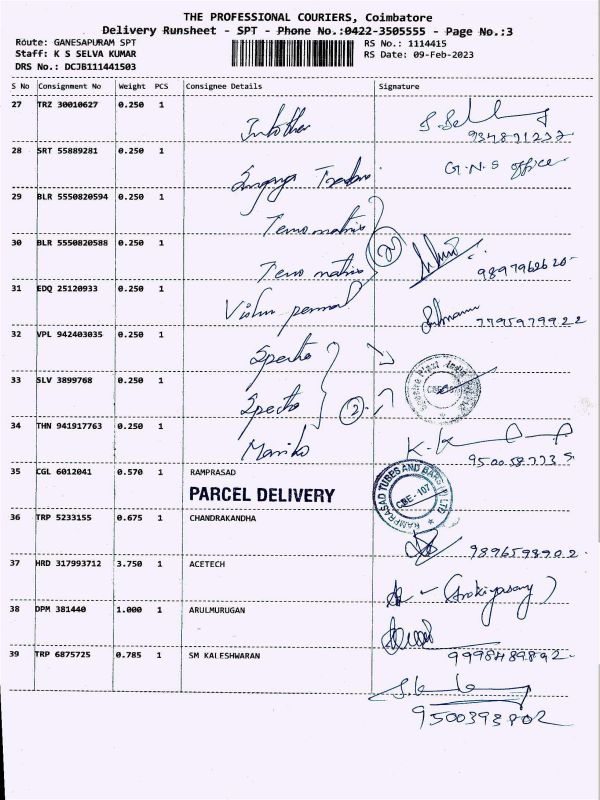 THE PROFESSIONAL COURIERS, Coimbatore
Delivery Runsheet - SPT - Phone No.:0422-3505555 - Page No.:3
Route: GANESAPURAM SPT
Staff: K S SELVA KUMAR
DRS No.: DCJB111441503
RS No.: 1114415
RS Date: 09-Feb-2023
S No Consignment No Weight PCS Consignee Details Signature
27 TRZ 30010627 0.250 1
9348912322
28 SRT 55889281 0.250 1 G.N.S office
29 BLR 5550820594 0.250 1
30 BLR 5550820588 0.250 1
2
31 EDQ 25120933 0.250 1
7795979922
32 VPL 942403035 0.250 1 Spectra
33 SLV 3899768 0.250 1 Spectra
2
34 THN 941917763 0.250 1 Mariko
35 CGL 6012041 0.570 1 RAMPRASAD
PARCEL DELIVERY
RAMPRASAD TUBES AND BARS (P) LTD
CBE - 107
36 TRP 5233155 0.675 1 CHANDRAKANDHA
9896598902
37 HRD 317993712 3.750 1 ACETECH
38 DPM 381440 1.000 1 ARULMURUGAN
9998489892
39 TRP 6875725 0.785 1 SM KALESHWARAN
9500393802